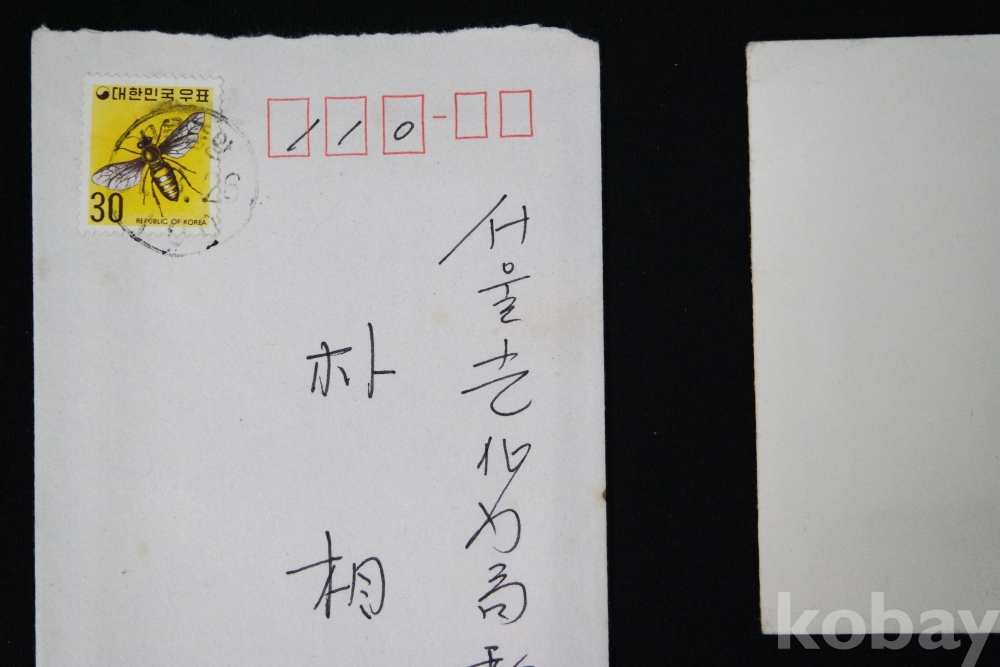 대한민국우표
30
REPUBLIC OF KOREA
110
서울光化門高
朴相
kobay